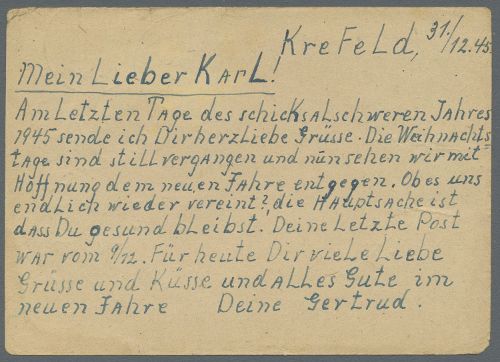 Krefeld, 31./12.45
Mein Lieber Karl!
Am Letzten Tage des schicksalschweren Jahres
1945 sende ich Dir herzliebe Grüsse. Die Weihnachts=
tage sind still vergangen und nun sehen wir mit
Hoffnung dem neuen Jahre entgegen. Ob es uns
endlich wieder vereint? die Hauptsache ist
dass Du gesund bleibst! Deine Letzte Post
war vom 9/12. Für heute Dir viele Liebe
Grüsse und Küsse und alles Gute im
neuen Jahre Deine Gertrud.